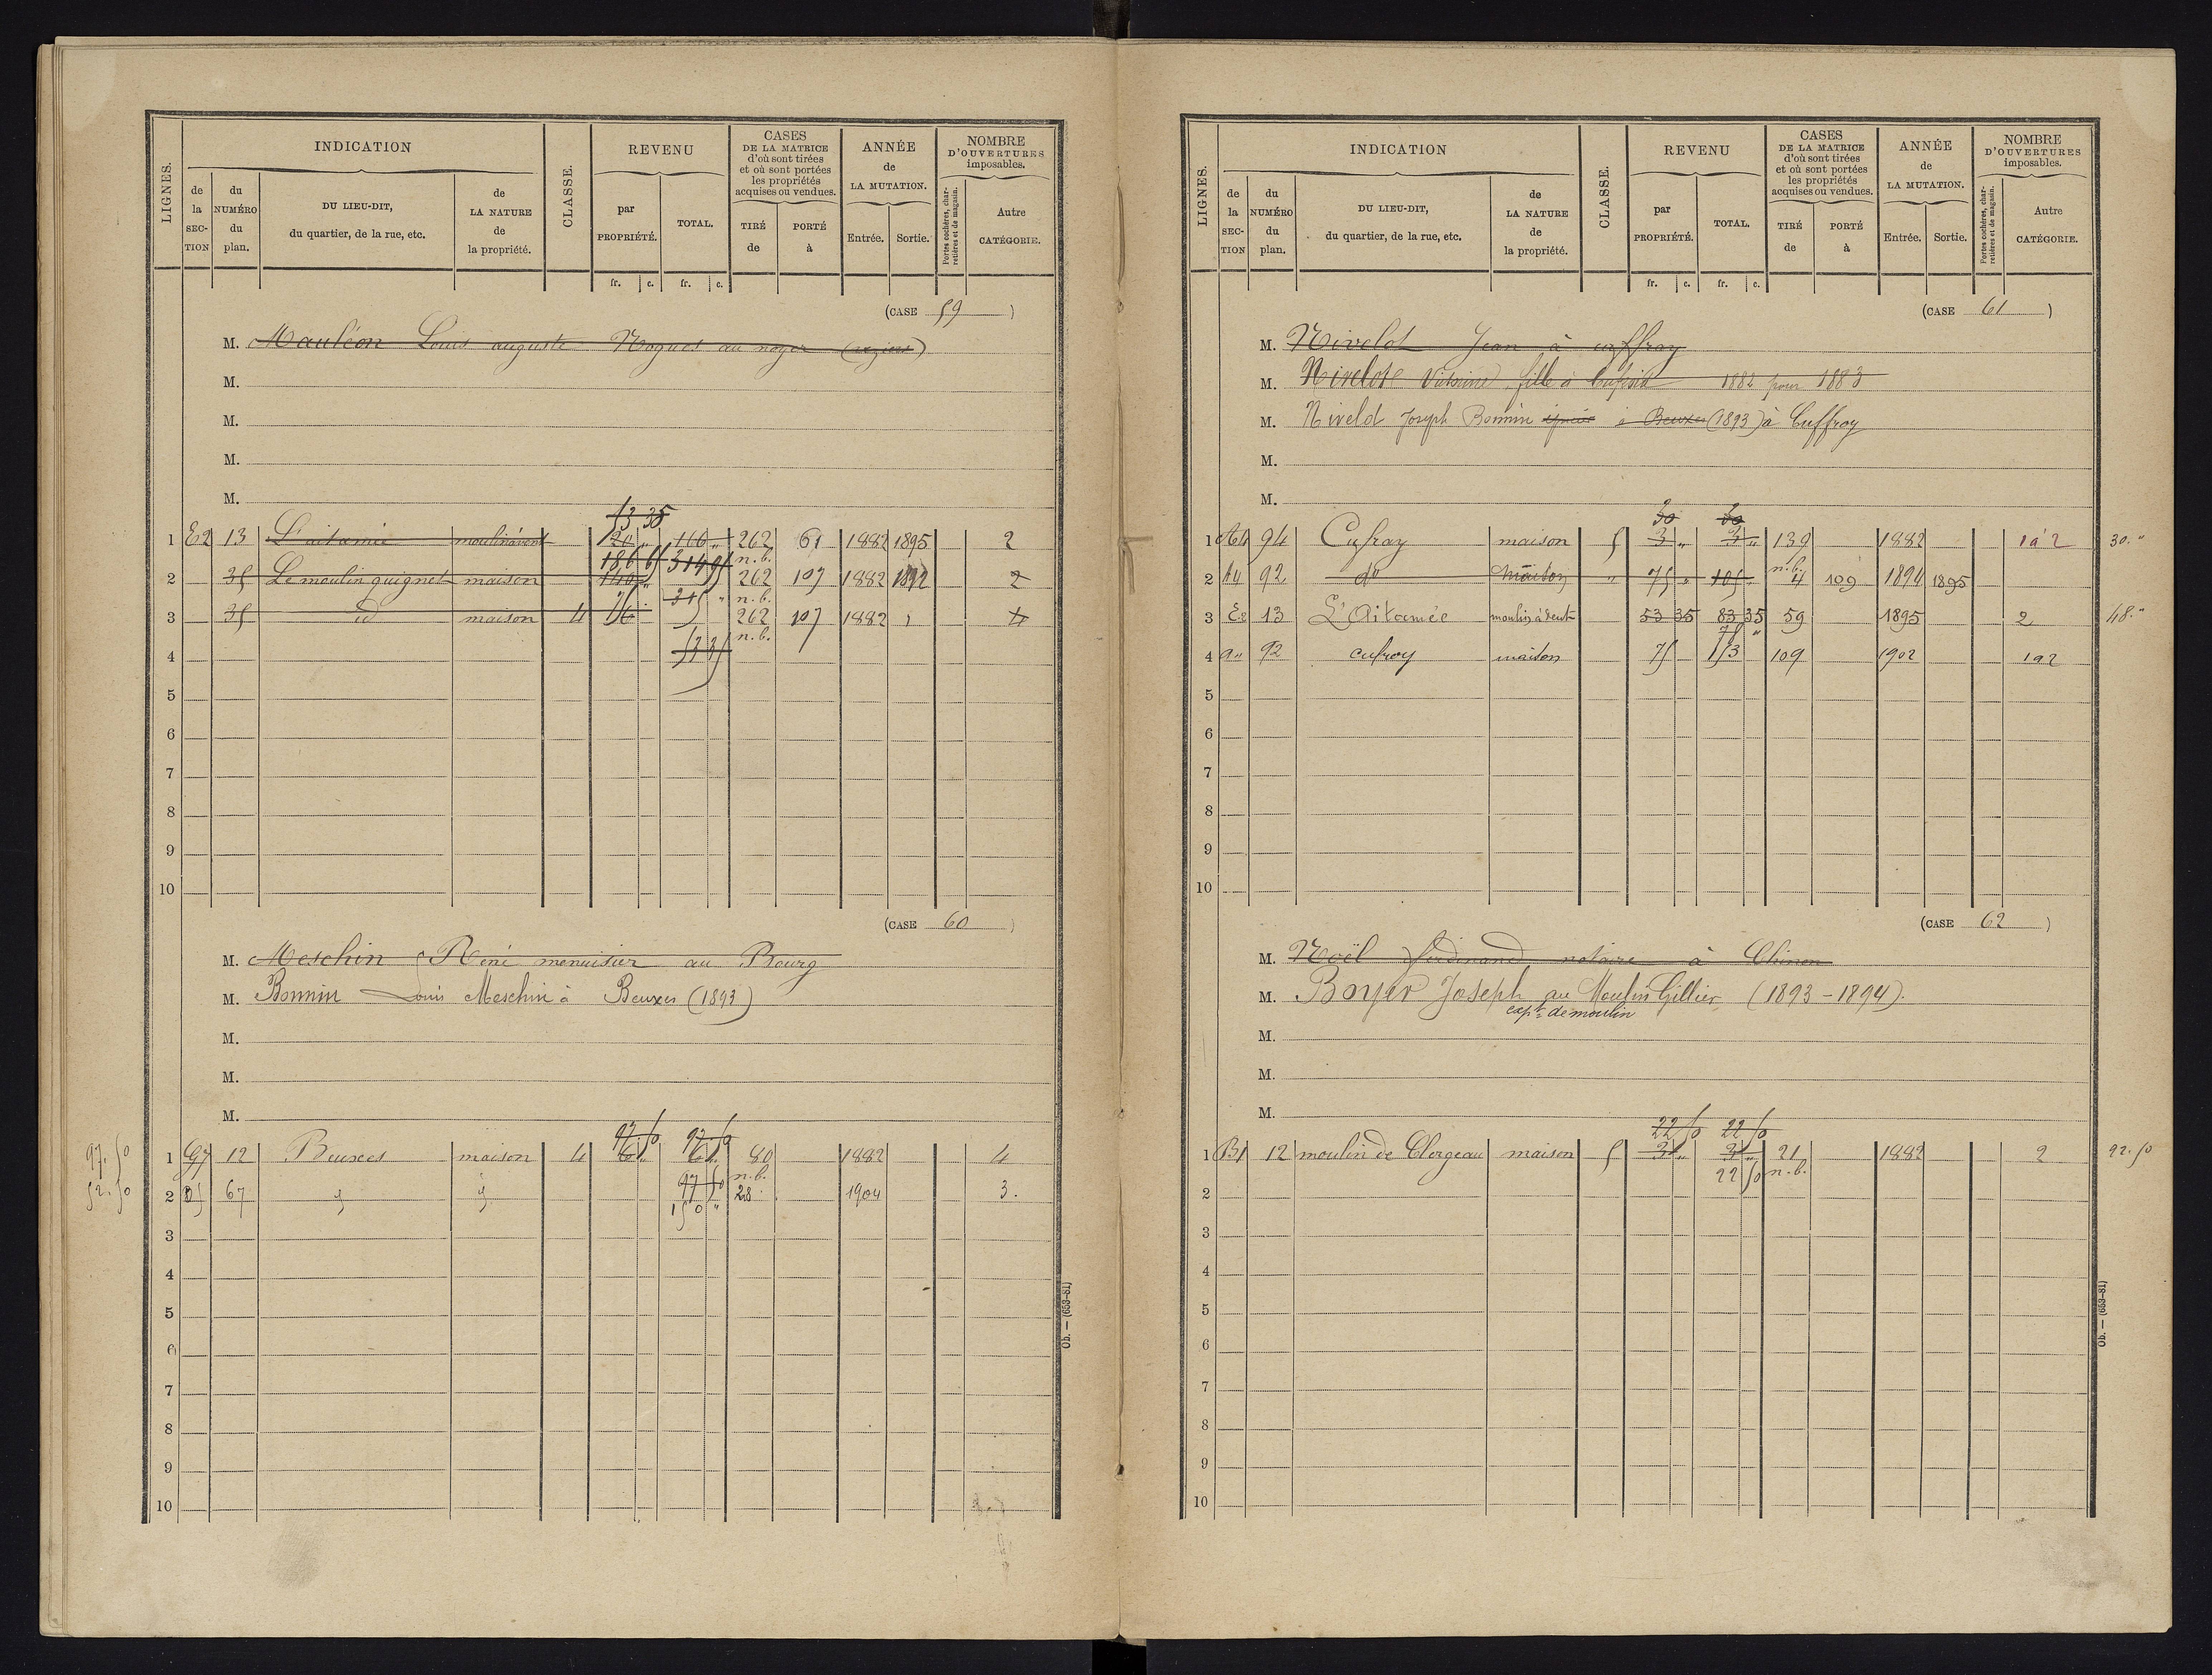 LIGNES. INDICATION CLASSE. REVENU CASES DE LA MATRICE d'où sont tirées et où sont portées les propriétés acquises ou vendues. ANNÉE de LA MUTATION. NOMBRE D'OUVERTURES imposables.
de la SECTION du NUMÉRO du plan. DU LIEU-DIT, du quartier, de la rue, etc. de LA NATURE de la propriété. par PROPRIÉTÉ. TOTAL. TIRÉ de PORTÉ à Entrée. Sortie. Portes cochères, charretières et de magasin. Autre CATÉGORIE.
fr. c. fr. c.
(CASE 59)
M. Mauléon Louis auguste Nogues au noyer
M.
M.
M.
M.
53 35
1 E2 13 L'aitamie moulin à vent 120 " 166 " 262 61 1882 1895 2
186 65 314 95 n.b.
2 35 Le moulin guignet maison 140 " 262 107 1882 1892 2
75 315 " n.b.
3 35 id maison 4 262 107 1882 4
n.b.
4 535
5
6
7
8
9
10
(CASE 60)
M. Meschin René menuisier au Bourg
M. Bonnin Louis Meschin à Beuxes (1893)
M.
M.
M.
97.50 97.50
97.50 1 G7 12 Beuxes maison 4 80 1882 4
97 50 n.b.
52.50 2 67 28 1904 3.
150 "
3
4
5
6
7
8
9
10
Ob. — (653-81)
LIGNES. INDICATION CLASSE. REVENU CASES DE LA MATRICE d'où sont tirées et où sont portées les propriétés acquises ou vendues. ANNÉE de LA MUTATION. NOMBRE D'OUVERTURES imposables.
de la SECTION du NUMÉRO du plan. DU LIEU-DIT, du quartier, de la rue, etc. de LA NATURE de la propriété. par PROPRIÉTÉ. TOTAL. TIRÉ de PORTÉ à Entrée. Sortie. Portes cochères, charretières et de magasin. Autre CATÉGORIE.
fr. c. fr. c.
(CASE 61)
M. Nivelot Jean à cuffray
M. Nivelot Victorine fille à 1882 pour 1883
M. Nivelot Joseph Bonnin à Beuxes (1893) à Cuffroy
M.
M.
30 30
1 A4 94 Cufray maison 5 3 " 3 " 139 1882 1 à 2 30. "
n.b.
2 A4 92 do maison " 75 " 105 " 4 109 1894 1895
3 E2 13 L'Aitamée moulin à vent 53 35 83 35 59 1895 2 48. "
78 "
4 92 cufroy maison 75 153 109 1902 1 à 2
5
6
7
8
9
10
(CASE 62)
M. Noël Ferdinand notaire à Chinon
M. Boyer Joseph au Moulin Gillier, (1893-1894).
expt de moulin
M.
M.
M.
22 50 22 50
1 B1 12 moulin de Clergeau maison 5 3 " 3 " 21 1882 2 22.50
22 50 n.b.
2
3
4
5
6
7
8
9
10
Ob. — (653-81)